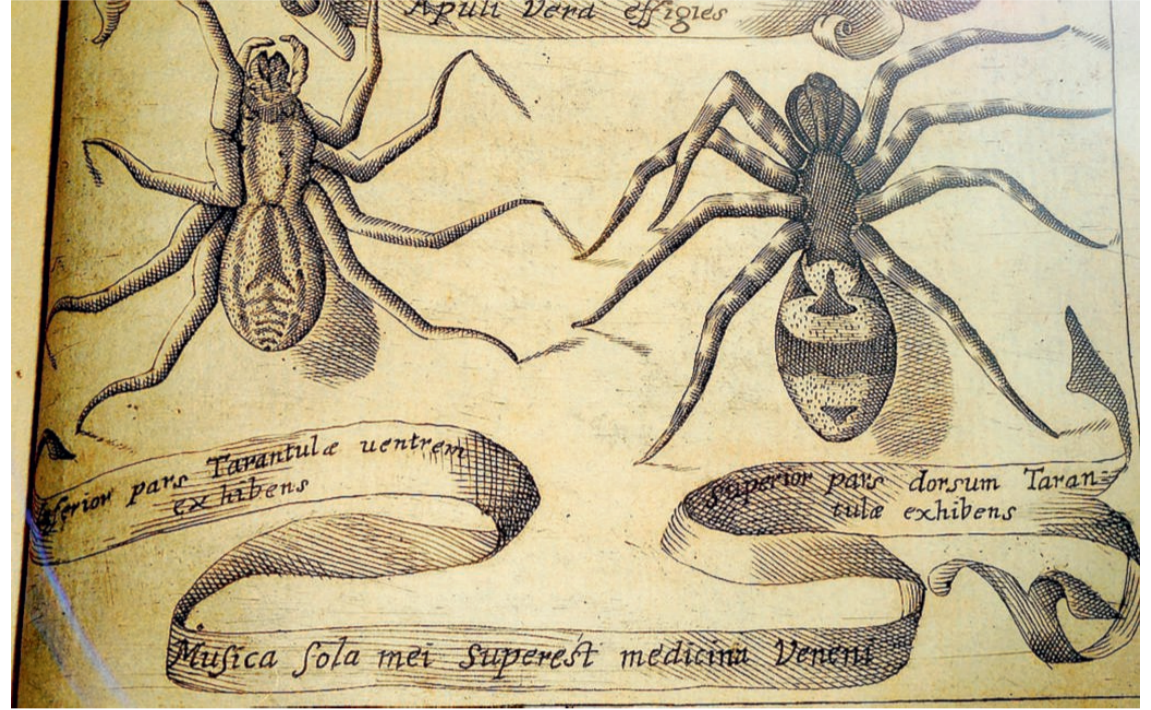 Apuli Vera effigies
ferior pars Tarantulæ uentrem
exhibens
Superior pars dorsum Taran=
tulæ exhibens
Muſica ſola mei Superest medicina Veneni